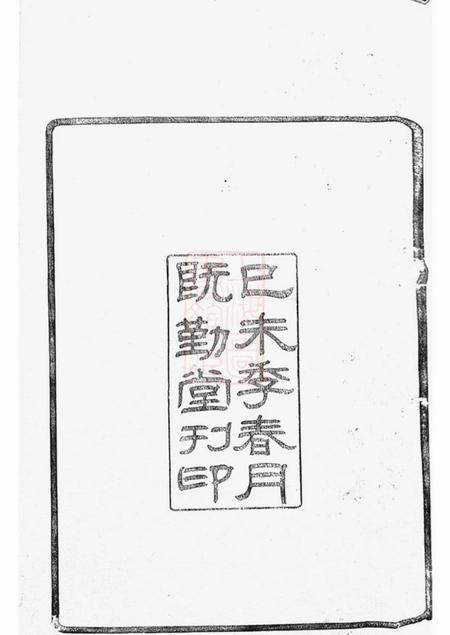 己未季春月
既勤堂刊印